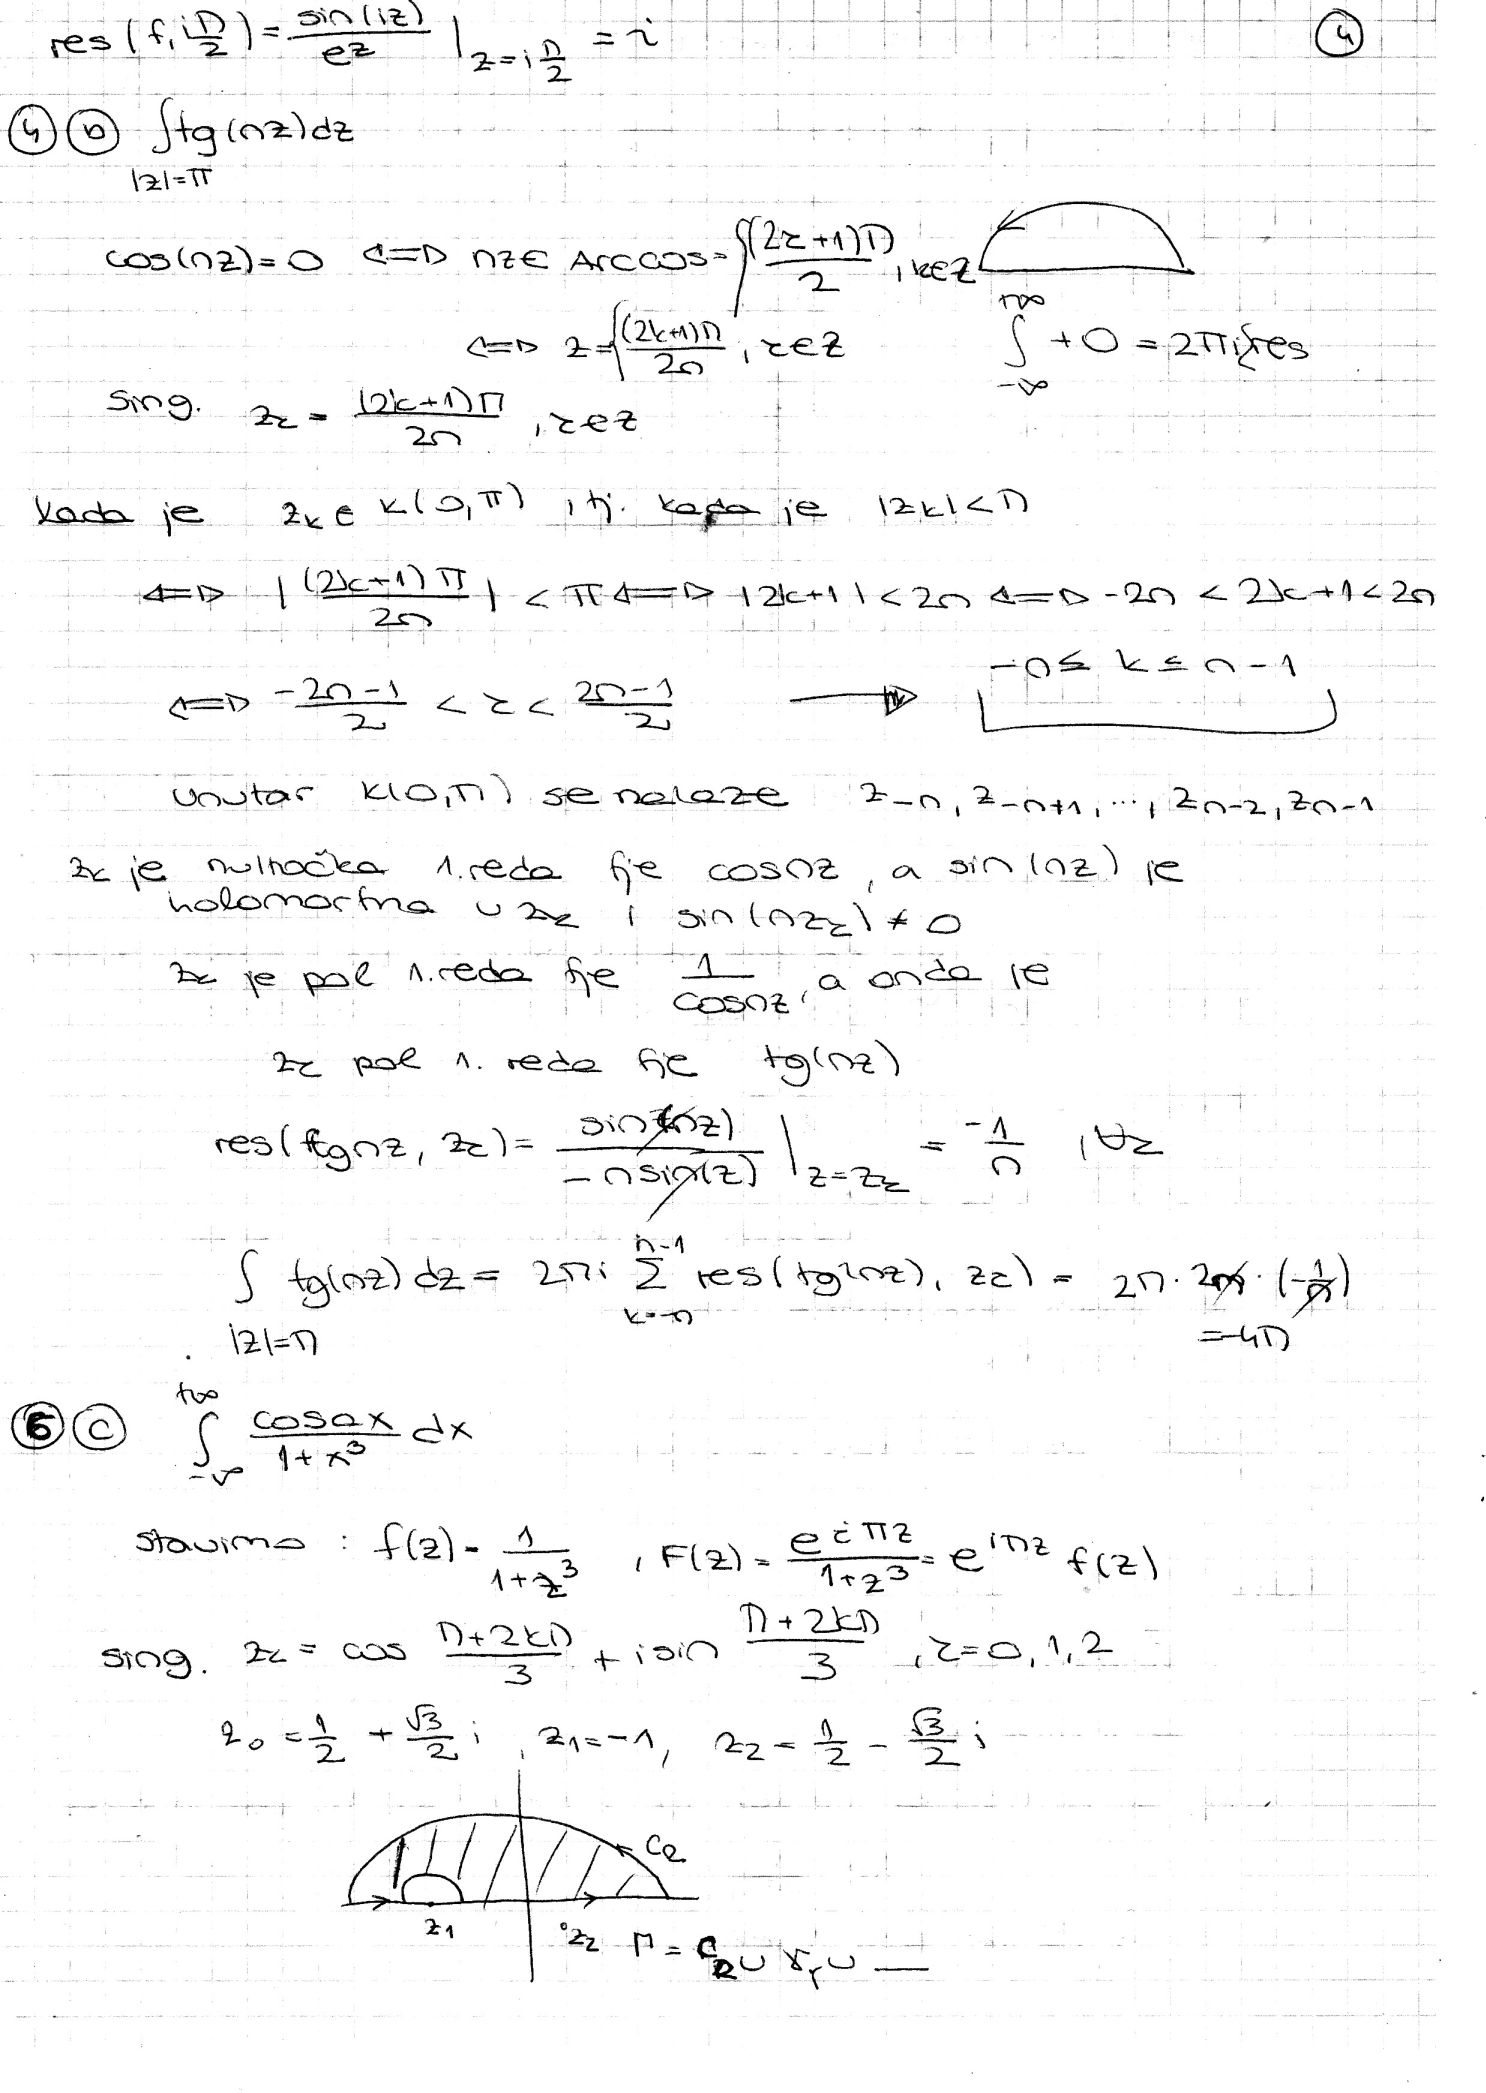 res(f, iπ/2) = sin(iz)/ez |z=iπ/2 = i
④
④ ⓑ ∫tg(nz)dz
|z|=π
cos(nz)=0 <=> nz∈ Arccos={(2k+1)π/2, k∈Z
<=> z={(2k+1)π/2n, k∈Z
+∞∫-∞ +0 = 2πi∑res
sing. zk = (2k+1)π/2n, k∈Z
kada je zk∈ K(0,π), tj. kada je |zk|<π
<=> |(2k+1)π/2n| < π <=> |2k+1| < 2n <=> -2n < 2k+1 < 2n
<=> -2n-1/2 < k < 2n-1/2 → -n ≤ k ≤ n-1
unutar K(0,π) se nalaze z-n, z-n+1, ..., zn-2, zn-1
zk je nultočka 1.reda fje cosnz, a sin(nz) je
holomorfna u zk i sin(nzk) ≠ 0
zk je pol 1.reda fje 1/cosnz, a onda je
zk pol 1. reda fje tg(nz)
res(tgnz, zk) = sin(nz)/-nsin(z) |z=zk = -1/n, ∀k
∫ tg(nz)dz = 2πi n-1∑k=-n res(tg(nz), zk) = 2π·2n·(-1/n)
|z|=π
=-4π
⑤ ⓒ +∞∫-∞ cosax/1+x³ dx
stavimo : f(z) = 1/1+z³, F(z) = e^iπz/1+z³ = e^iπz f(z)
sing. zk = cos π+2kπ/3 + isin π+2kπ/3, k=0,1,2
z0 = 1/2 + √3/2 i, z1=-1, z2 = 1/2 - √3/2 i
CR
z1
z2 Γ = CR ∪ γr ∪ —